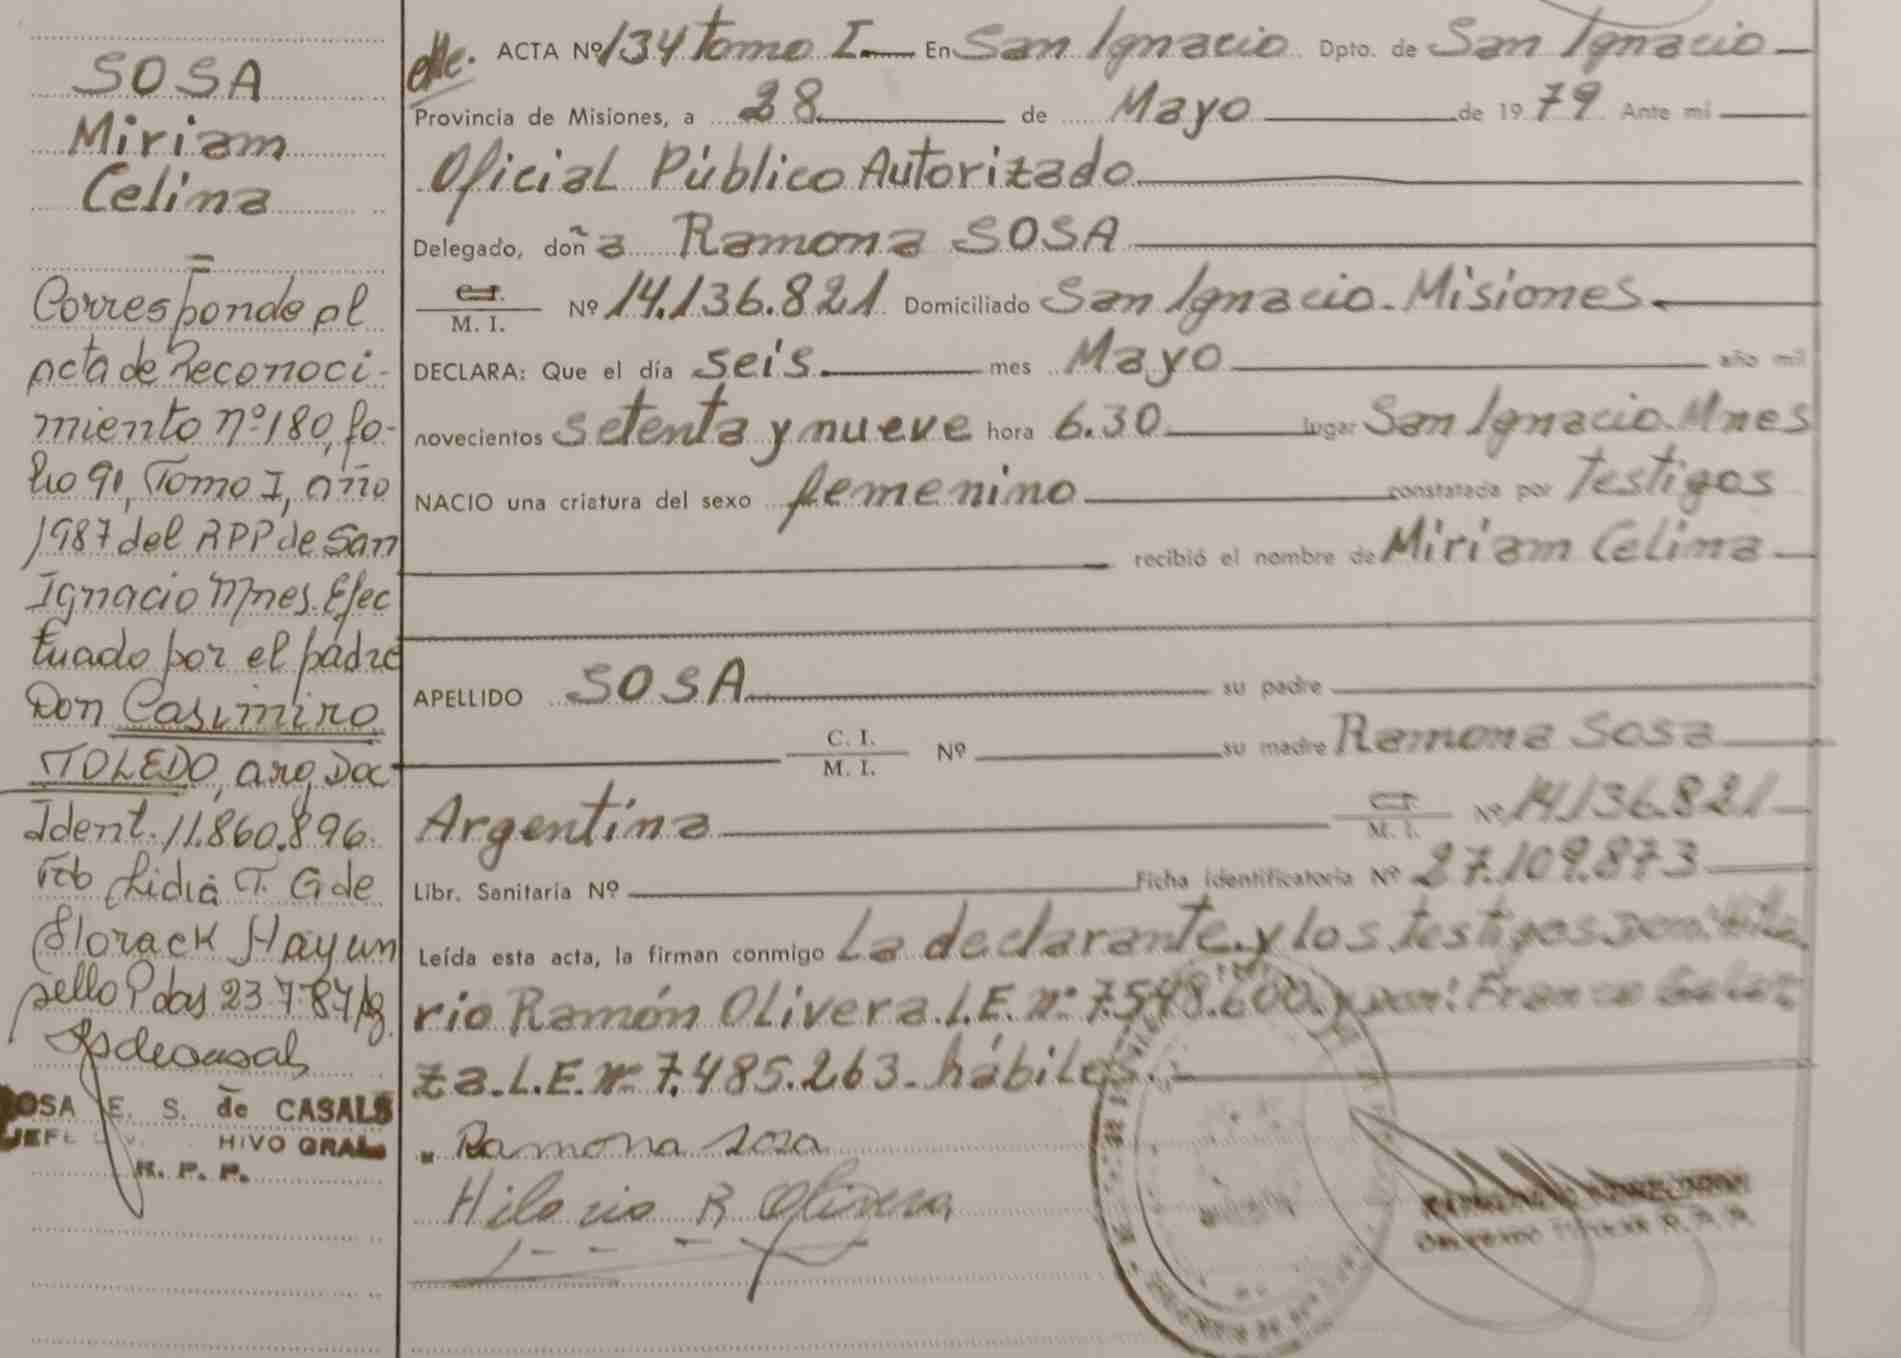 SOSA
Miriam
Celina
=
Corresponde al
acta de Reconoci-
miento nº 180, fo-
lio 91, Tomo I, año
1987 del RPP de San
Ignacio Mnes. Efec
tuado por el padre
Don Casimiro
TOLEDO, arg, Doc
Ident. 11.860.896.
Lidia T. G de
Florack Hay un
sello Pdas 23 7 87
OSA E. S. de CASALS
HIVO GRAL
R. P. P.
ACTA Nº 134 Tomo I. En San Ignacio Dpto. de San Ignacio
Provincia de Misiones, a 28 de Mayo de 1979 Ante mí
Oficial Público Autorizado
Delegado, doña Ramona SOSA
C.I.
M. I. Nº 14.136.821 Domiciliado San Ignacio - Misiones
DECLARA: Que el día seis mes Mayo año mil
novecientos setenta y nueve hora 6.30 lugar San Ignacio Mnes
NACIO una criatura del sexo femenino constatada por testigos
recibió el nombre de Miriam Celina
APELLIDO SOSA su padre
C. I.
M. I. Nº su madre Ramona Sosa
Argentina C.I.
M. I. Nº 14.136.821
Libr. Sanitaria Nº Ficha Identificatoria Nº 27.109.873
Leída esta acta, la firman conmigo La declarante y los testigos Don: Hila
rio Ramón Olivera. L.E. nº 7.548.600. y Don:
za. L.E. nº 7.485.263. hábiles.
Ramona Sosa
Hilario R Olivera